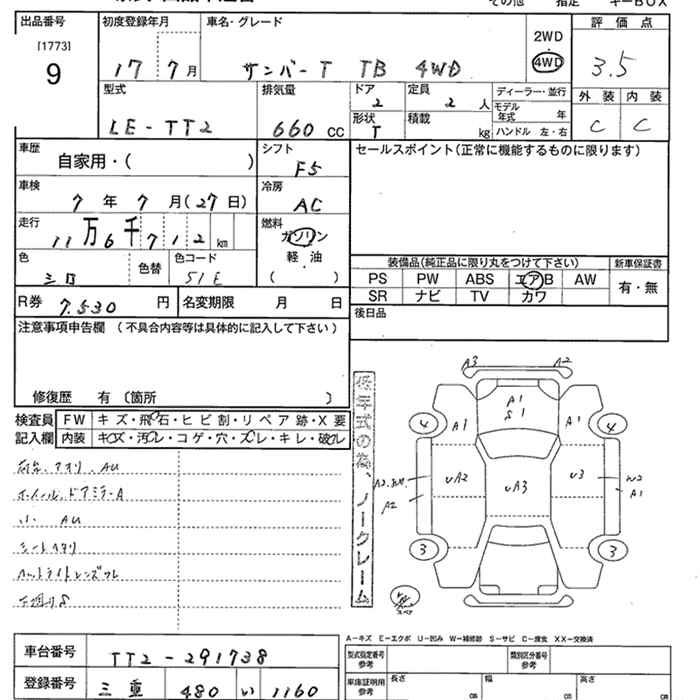 その他 指定 キーBOX
出品番号 初度登録年月 車名・グレード 評価点
[1773]
9
17 7月 サンバーT TB 4WD
2WD
4WD
3.5
型式 LE-TT2
排気量 660 CC
ドア 2
定員 2 人
形状 T
積載 kg
ディーラー・並行
モデル年式 年
ハンドル 左・右
外装 内装
C C
車歴 自家用・( )
シフト F5
セールスポイント(正常に機能するものに限ります)
車検 7年7月(27日)
冷房 AC
走行 11万6千712km
燃料 ガソリン
軽・油
( )
色 シロ 色替 色コード 51E
装備品(純正品に限り丸をつけて下さい) 新車保証書
PS PW ABS エアB AW
SR ナビ TV カワ
有・無
R券 7.530 円 名変期限 月 日
後日品
注意事項申告欄 (不具合内容等は具体的に記入して下さい)
修復歴 有 〔箇所 〕
検査員記入欄
FW キズ・飛石・ヒビ割・リペア跡・X要
内装 キズ・汚レ・コゲ・穴・ズレ・キレ・破レ
荷台、アオリ、AU
ホイール、ドアミラーA
小 AU
シートヘタリ
ヘッドライトレンズクレ
下廻りS
低年式の為、ノークレーム
A3 A2
A1
S1
A1 A1
4 4
UA2 UA3 U3
A2
W2
A1
3 3
スペア
A-キズ E-エクボ U-凹み W-補修跡 S-サビ C-腐食 XX-交換済
車台番号 TT2-291738
登録番号 三重 480 い 1160
型式指定番号 参考
類別区分番号 参考
車庫証明用 参考
長さ cm 幅 cm 高さ cm